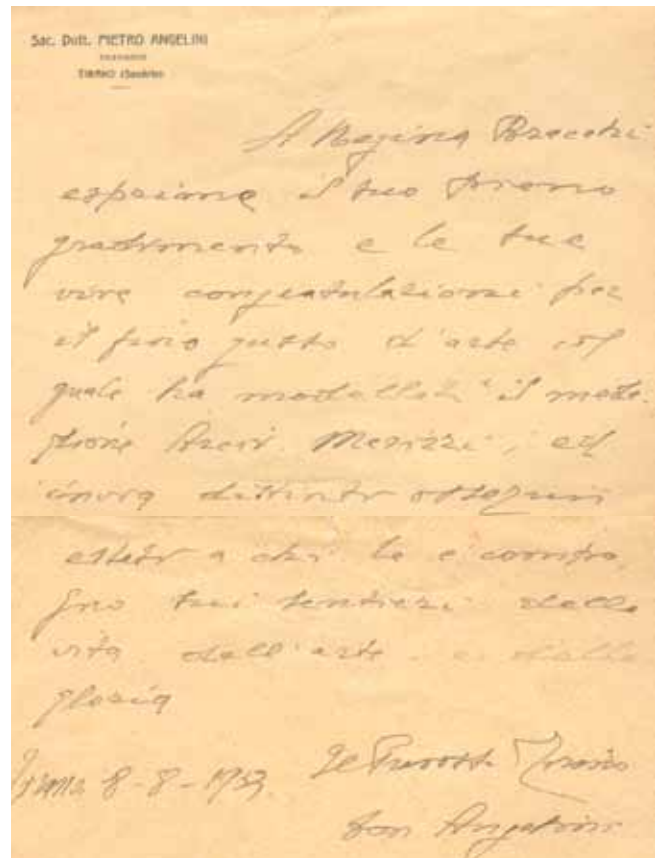 Sac. Dott. PIETRO ANGELINI
TIRANO (Sondrio)
A Regina Bracchi
esprime il suo
gradimento e le sue
vive congratulazioni per
il gusto d'arte col
quale ha modellato il meda-
glione Merizzi, ed
invia distinti ossequi
a chi le è compa
gno sui sentieri della
vita dell'arte e della
gloria
Tirano 8-8-19
Il Prevosto
Don Angelini